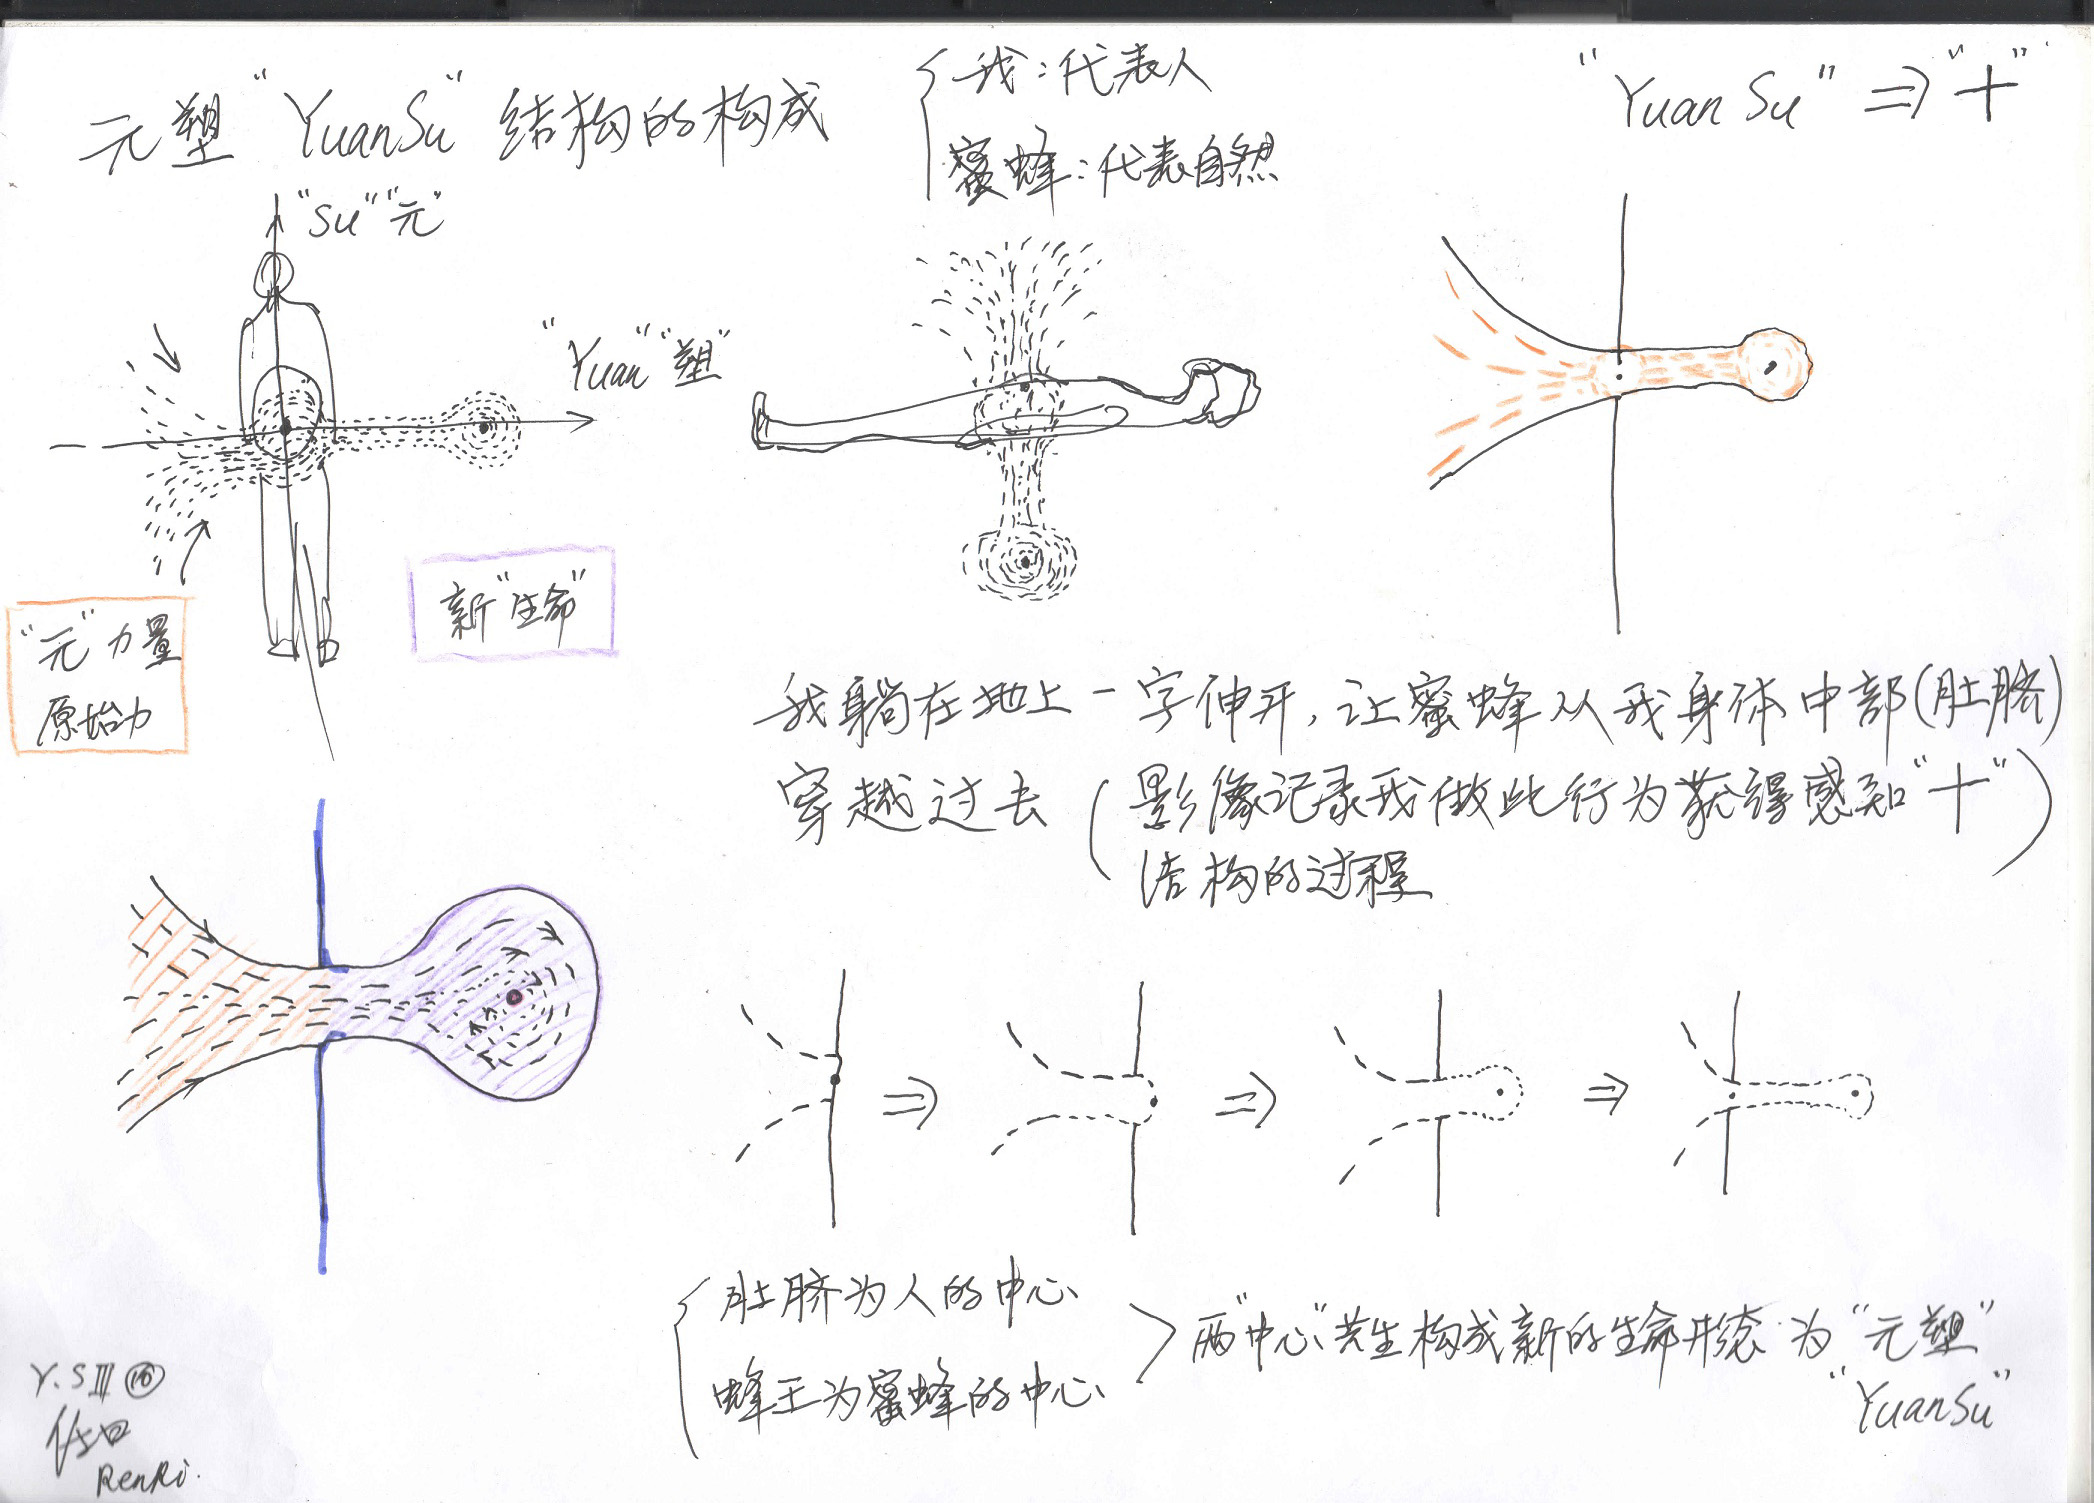 元塑"YuanSu"结构的构成
我:代表人
蜜蜂:代表自然
"YuanSu"⇒"十"
"Su""元"
"Yuan""塑"
新"生命"
"元"力量
原始力
我躺在地上一字伸开,让蜜蜂从我身体中部(肚脐)
穿越过去(影像记录我做此行为获得感知"十"
结构的过程)
肚脐为人的中心
蜂王为蜜蜂的中心
两"中心"共生构成新的生命形态为"元塑"
"YuanSu"
Y.SⅢ⑯
任日
RenRi.